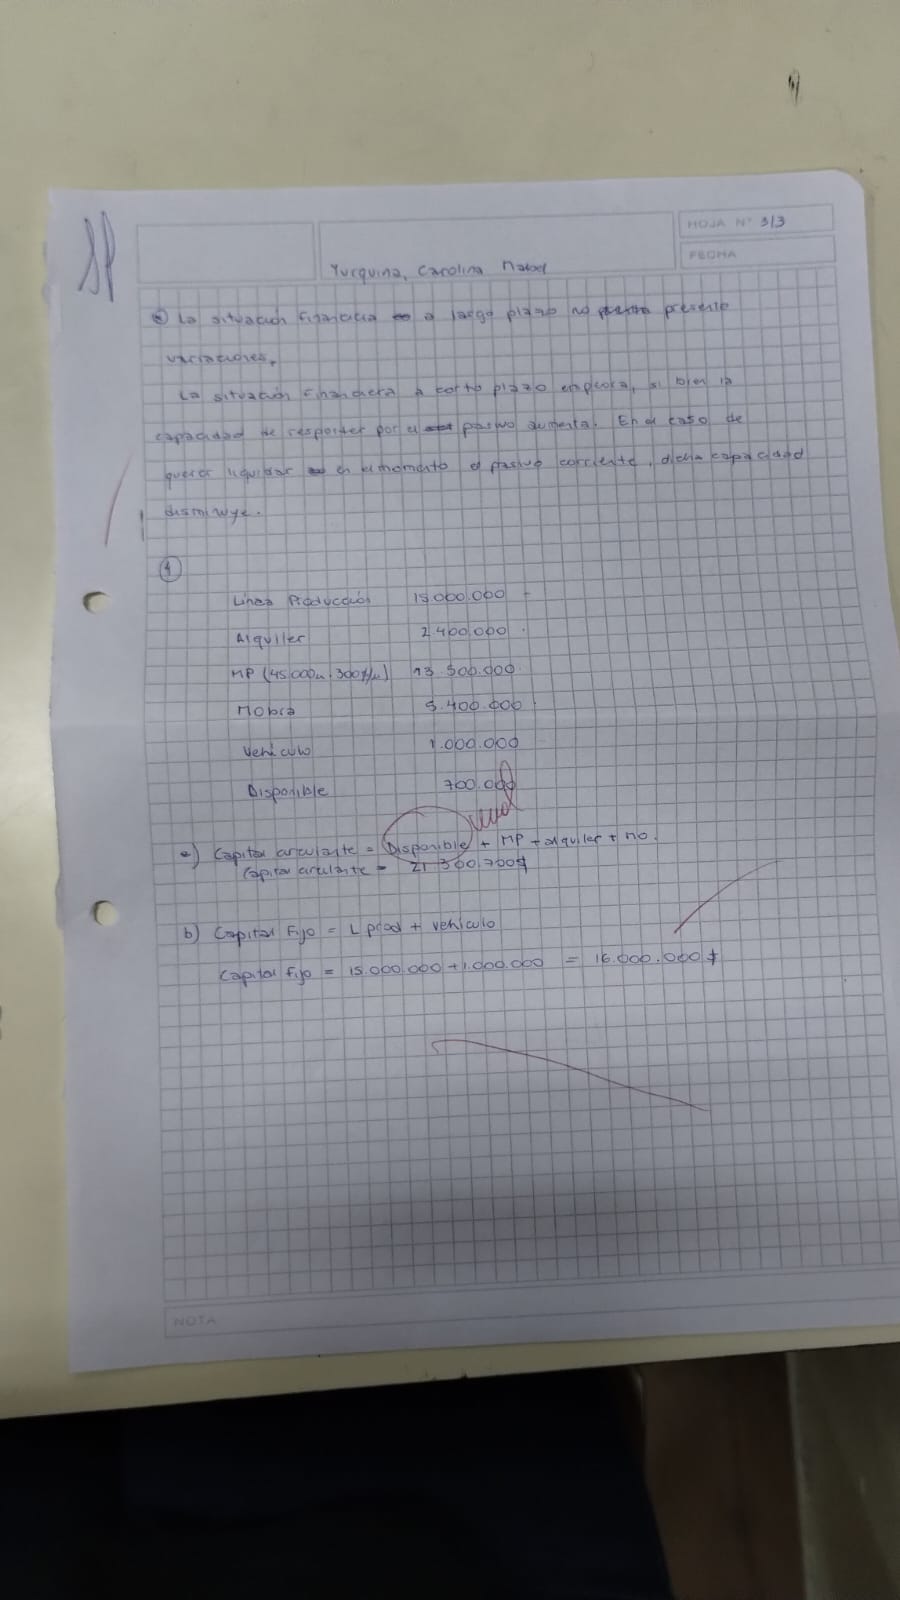 HOJA N° 3/3
FECHA
Yurquina, Carolina
La situación financiera a largo plazo no presenta
variaciones.
La situación financiera a corto plazo empeora, si bien la
capacidad de responder por el pasivo aumenta. En el caso de
querer liquidar en el momento el pasivo corriente, dicha capacidad
disminuye.
4
Linea Producción 15.000.000
Alquiler 2.400.000
MP (45.000u. 300$/u) 13.500.000
MObra 5.400.000
Vehiculo 1.000.000
Disponible 700.000
a) Capital circulante = Disponible + MP + alquiler + mo.
Capital circulante = 21 300.700$
b) Capital Fijo = L prod + vehiculo
Capital fijo = 15.000.000 + 1.000.000 = 16.000.000 $
NOTA